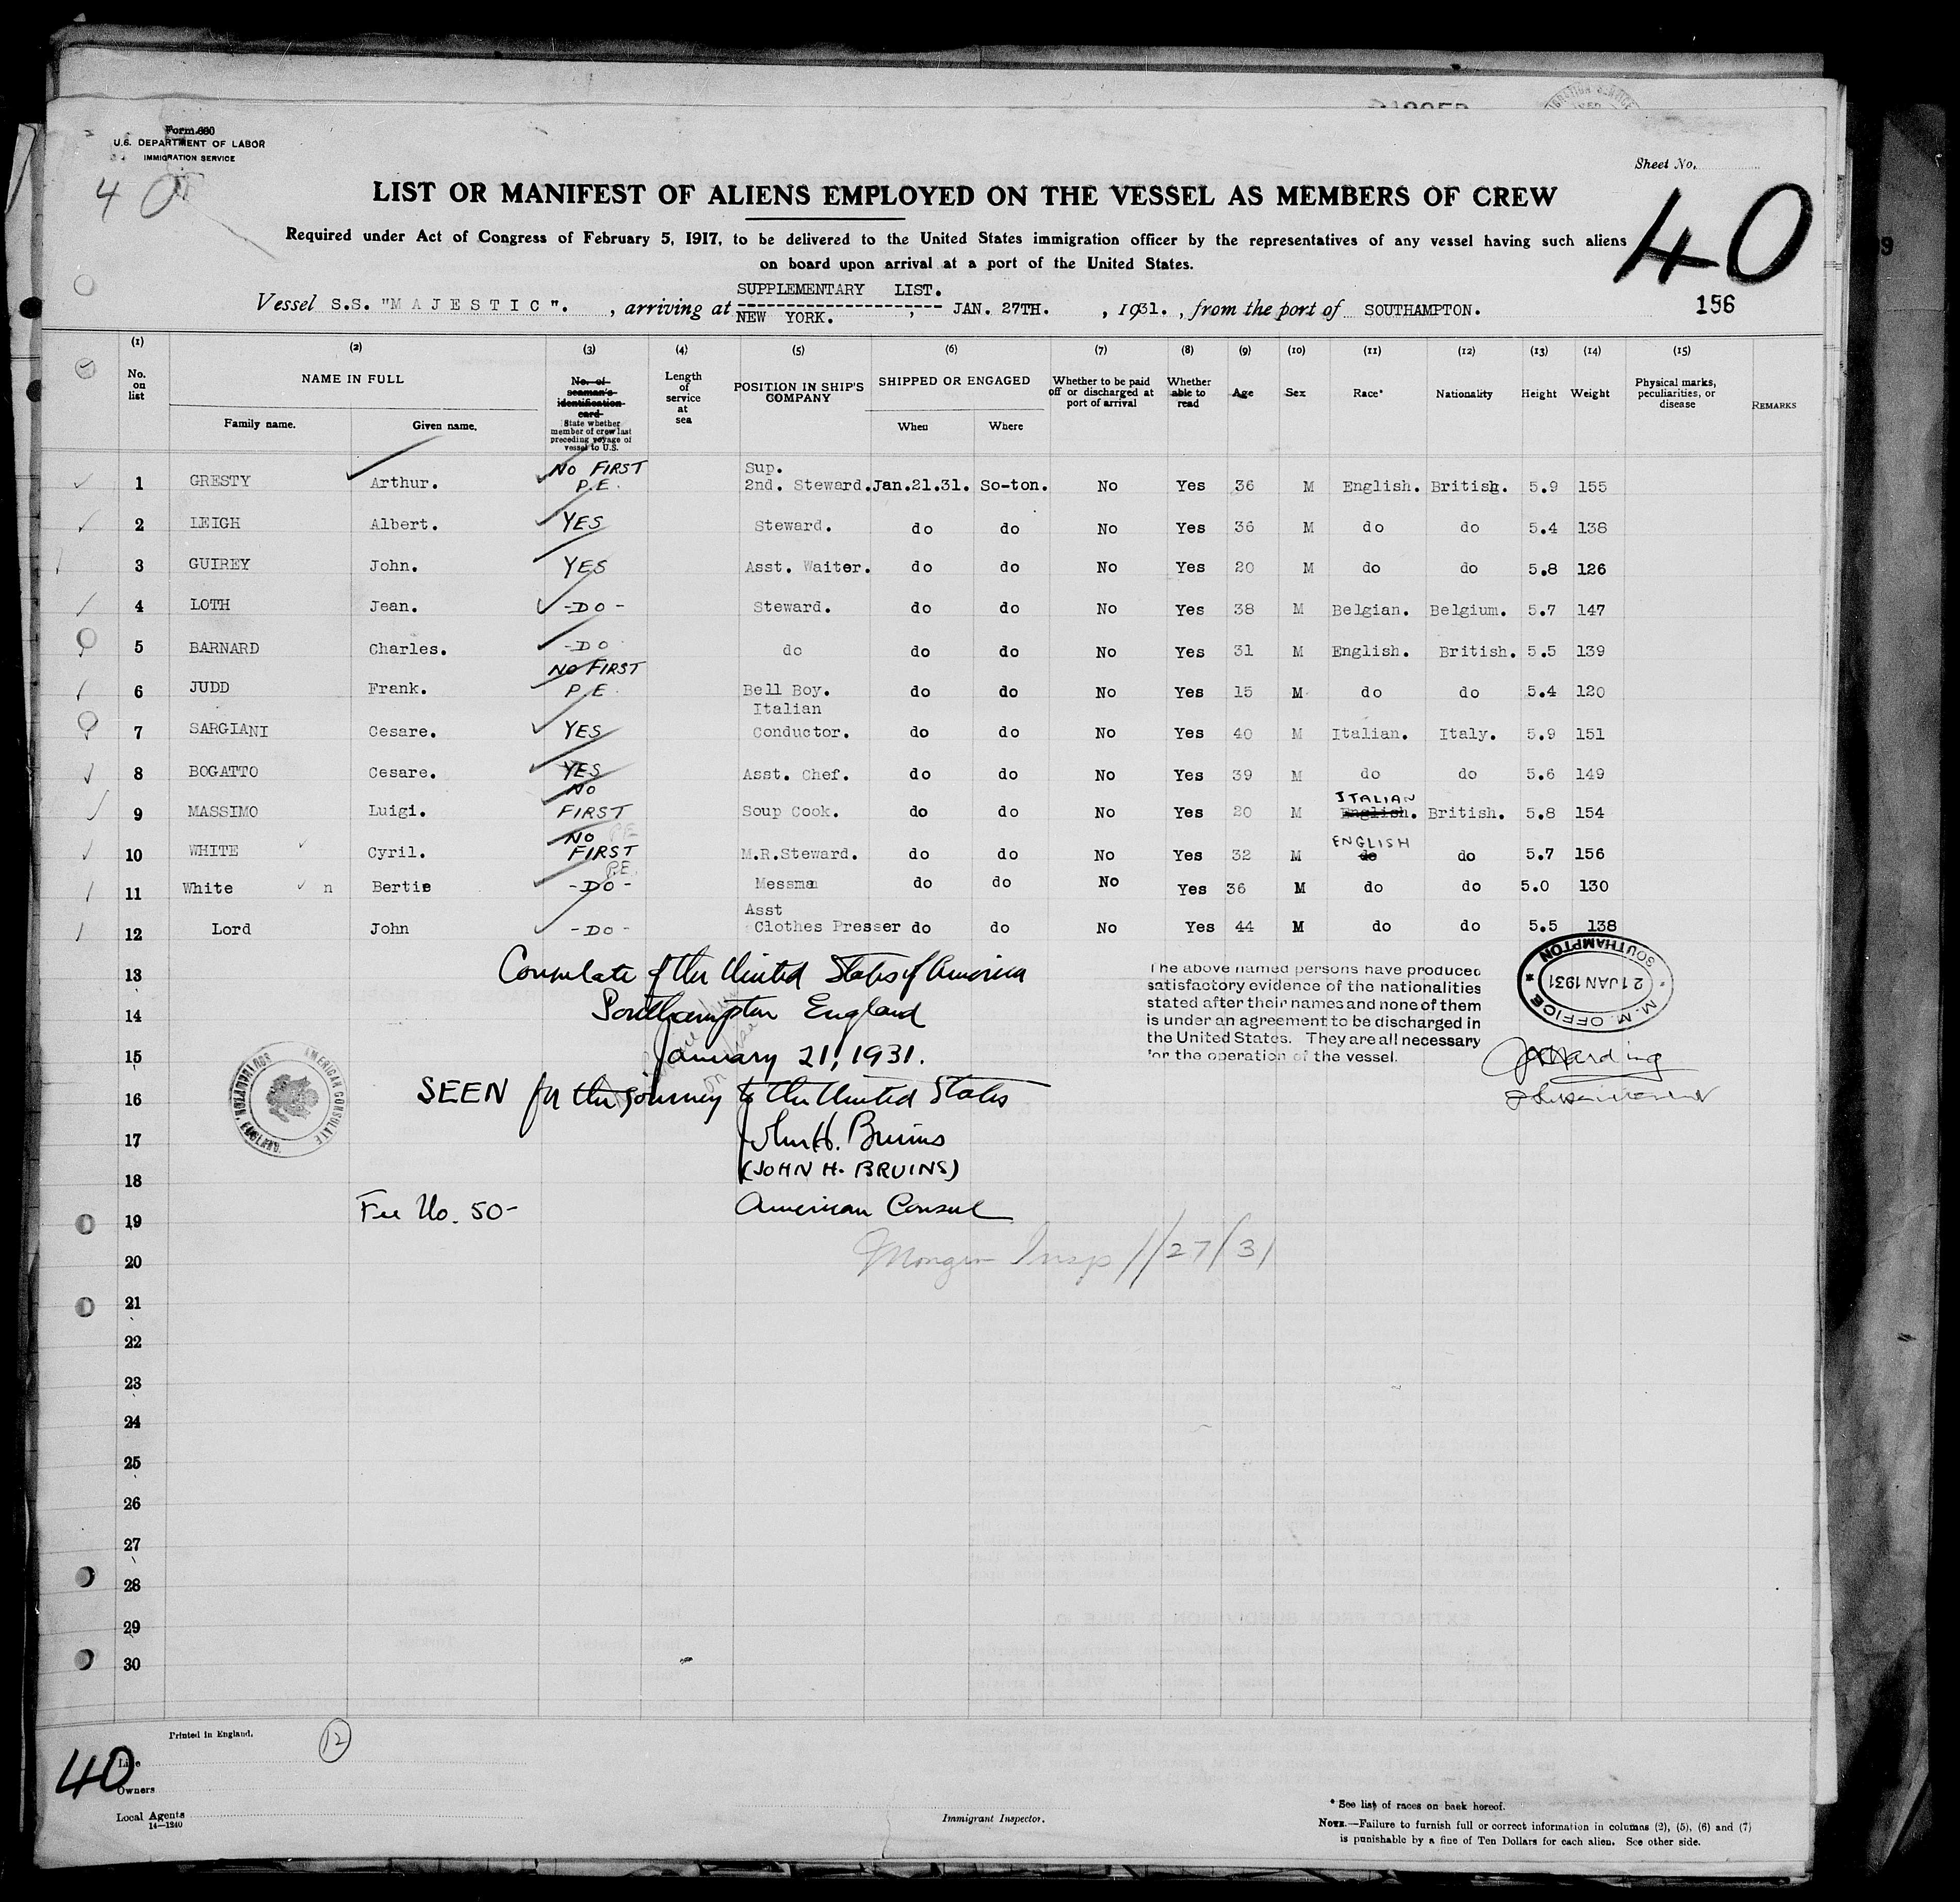 Form 680
U.S. DEPARTMENT OF LABOR
IMMIGRATION SERVICE
40
Sheet No.
LIST OR MANIFEST OF ALIENS EMPLOYED ON THE VESSEL AS MEMBERS OF CREW
Required under Act of Congress of February 5, 1917, to be delivered to the United States immigration officer by the representatives of any vessel having such aliens
on board upon arrival at a port of the United States.
40
SUPPLEMENTARY LIST.
Vessel S.S. "MAJESTIC". , arriving at NEW YORK. , JAN. 27TH. , 1931. , from the port of SOUTHAMPTON.
156
(1) (2) (3) (4) (5) (6) (7) (8) (9) (10) (11) (12) (13) (14) (15)
No. on list NAME IN FULL No. of seaman's identification card State whether member of crew last preceding voyage of vessel to U.S. Length of service at sea POSITION IN SHIP'S COMPANY SHIPPED OR ENGAGED Whether to be paid off or discharged at port of arrival Whether able to read Age Sex Race* Nationality Height Weight Physical marks, peculiarities, or disease REMARKS
Family name. Given name. When Where
1 GRESTY Arthur. NO FIRST P.E. Sup. 2nd. Steward. Jan.21.31. So-ton. No Yes 36 M English. British. 5.9 155
2 LEIGH Albert. YES Steward. do do No Yes 36 M do do 5.4 138
3 GUIREY John. YES Asst. Waiter. do do No Yes 20 M do do 5.8 126
4 LOTH Jean. -DO- Steward. do do No Yes 38 M Belgian. Belgium. 5.7 147
5 BARNARD Charles. -DO do do do No Yes 31 M English. British. 5.5 139
6 JUDD Frank. NO FIRST P.E. Bell Boy. do do No Yes 15 M do do 5.4 120
7 SARGIANI Cesare. YES Italian Conductor. do do No Yes 40 M Italian. Italy. 5.9 151
8 BOGATTO Cesare. YES Asst. Chef. do do No Yes 39 M do do 5.6 149
9 MASSIMO Luigi. NO FIRST Soup Cook. do do No Yes 20 M ITALIAN English. British. 5.8 154
10 WHITE Cyril. NO FIRST P.E. M.R.Steward. do do No Yes 32 M ENGLISH do do 5.7 156
11 White n Bertie -DO- P.E. Messman do do No Yes 36 M do do 5.0 130
12 Lord John -DO- Asst Clothes Presser do do No Yes 44 M do do 5.5 138
13 Consulate of the United States of America
14 Southampton England
15 January 21, 1931.
16 SEEN for the journey to the United States
17 John H. Bruins
18 (JOHN H. BRUINS)
19 Fee No. 50- American Consul
20 Insp 1/27/31
The above named persons have produced
satisfactory evidence of the nationalities
stated after their names and none of them
is under an agreement to be discharged in
the United States. They are all necessary
for the operation of the vessel.
M. M. OFFICE * SOUTHAMPTON *
21 JAN 1931
Harding
AMERICAN CONSULATE
SOUTHAMPTON, ENGLAND.
21
22
23
24
25
26
27
28
29
30
Printed in England.
12
40
Line
Owners
Local Agents
14—1240
Immigrant Inspector.
* See list of races on back hereof.
NOTE.—Failure to furnish full or correct information in columns (2), (5), (6) and (7)
is punishable by a fine of Ten Dollars for each alien. See other side.